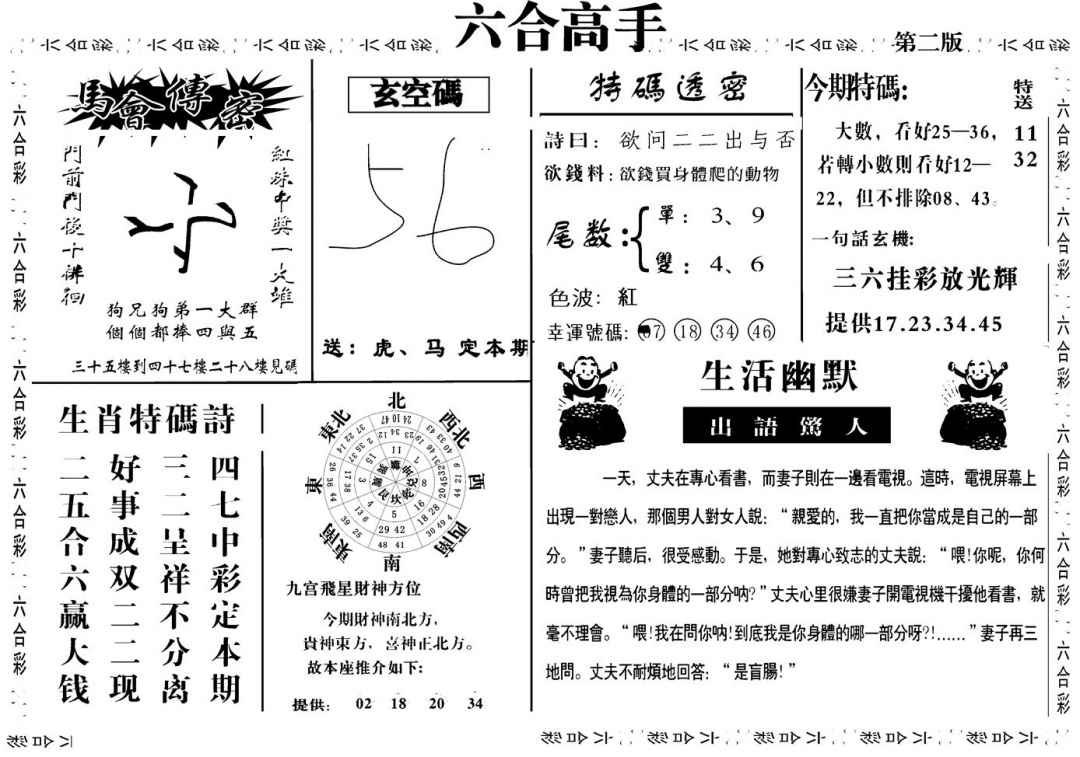 六合高手
第二版
馬會傳密
門前門後十徘徊
紅珠中獎一大堆
狗兄狗弟一大群
個個都棒四與五
三十五樓到四十七樓二十八樓見碼
玄空碼
56
送：虎、马 定本期
特碼透密
詩曰：欲问二二出与否
欲錢料：欲錢買身體爬的動物
尾数：
單：3、9
雙：4、6
色波：紅
幸運號碼：7 18 34 46
今期特碼:
特送
11
32
大數，看好25—36，
若轉小數則看好12—
22，但不排除08、43。
一句話玄機:
三六挂彩放光輝
提供17.23.34.45
生肖特碼詩
四七中彩定本期
三二呈祥不分离
好事成双二二现
二五合六赢大钱
北
西北
西
西南
南
東南
東
東北
九宫飛星財神方位
今期財神南北方，
貴神東方，喜神正北方。
故本座推介如下:
提供: 02 18 20 34
生活幽默
出語驚人
一天，丈夫在專心看書，而妻子則在一邊看電視。這時，電視屏幕上
出現一對戀人，那個男人對女人說：“親愛的，我一直把你當成是自己的一部
分。”妻子聽后，很受感動。于是，她對專心致志的丈夫說：“喂!你呢，你何
時曾把我視為你身體的一部分吶?”丈夫心里很嫌妻子開電視機干擾他看書，就
毫不理會。“喂!我在問你吶!到底我是你身體的哪一部分呀?!……”妻子再三
地問。丈夫不耐煩地回答：“是盲腸!”
六合彩